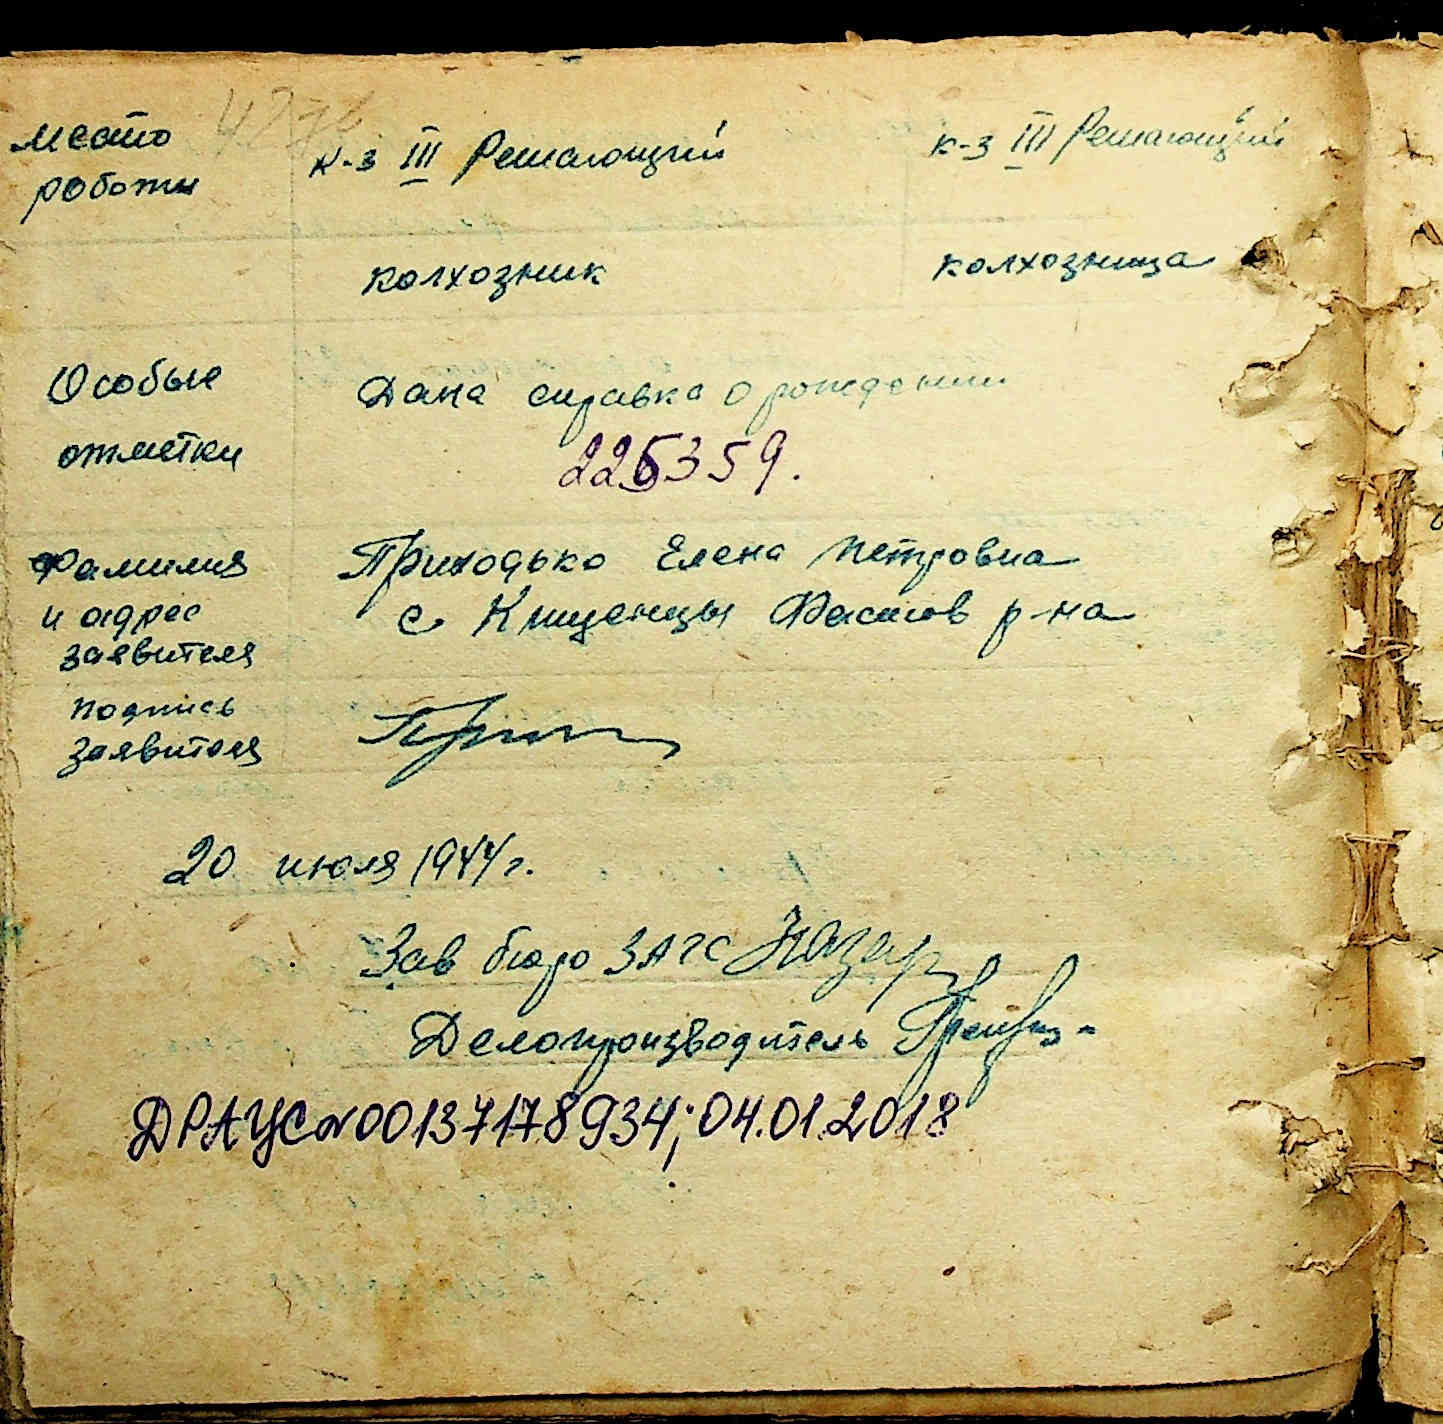 место к-з III Решающий к-з III Решающий
роботи
колхозник колхозница
Особые Дана справка о рождении
отметки 225359.
Фамилия Приходько Елена Петровна
и адрес с Кищенцы р-на
заявителя
подпись
заявителя
20 июля 1944 г.
Зав бюро ЗАГС
Делопроизводитель
ДРАЦС N 00137178934; 04.01.2018